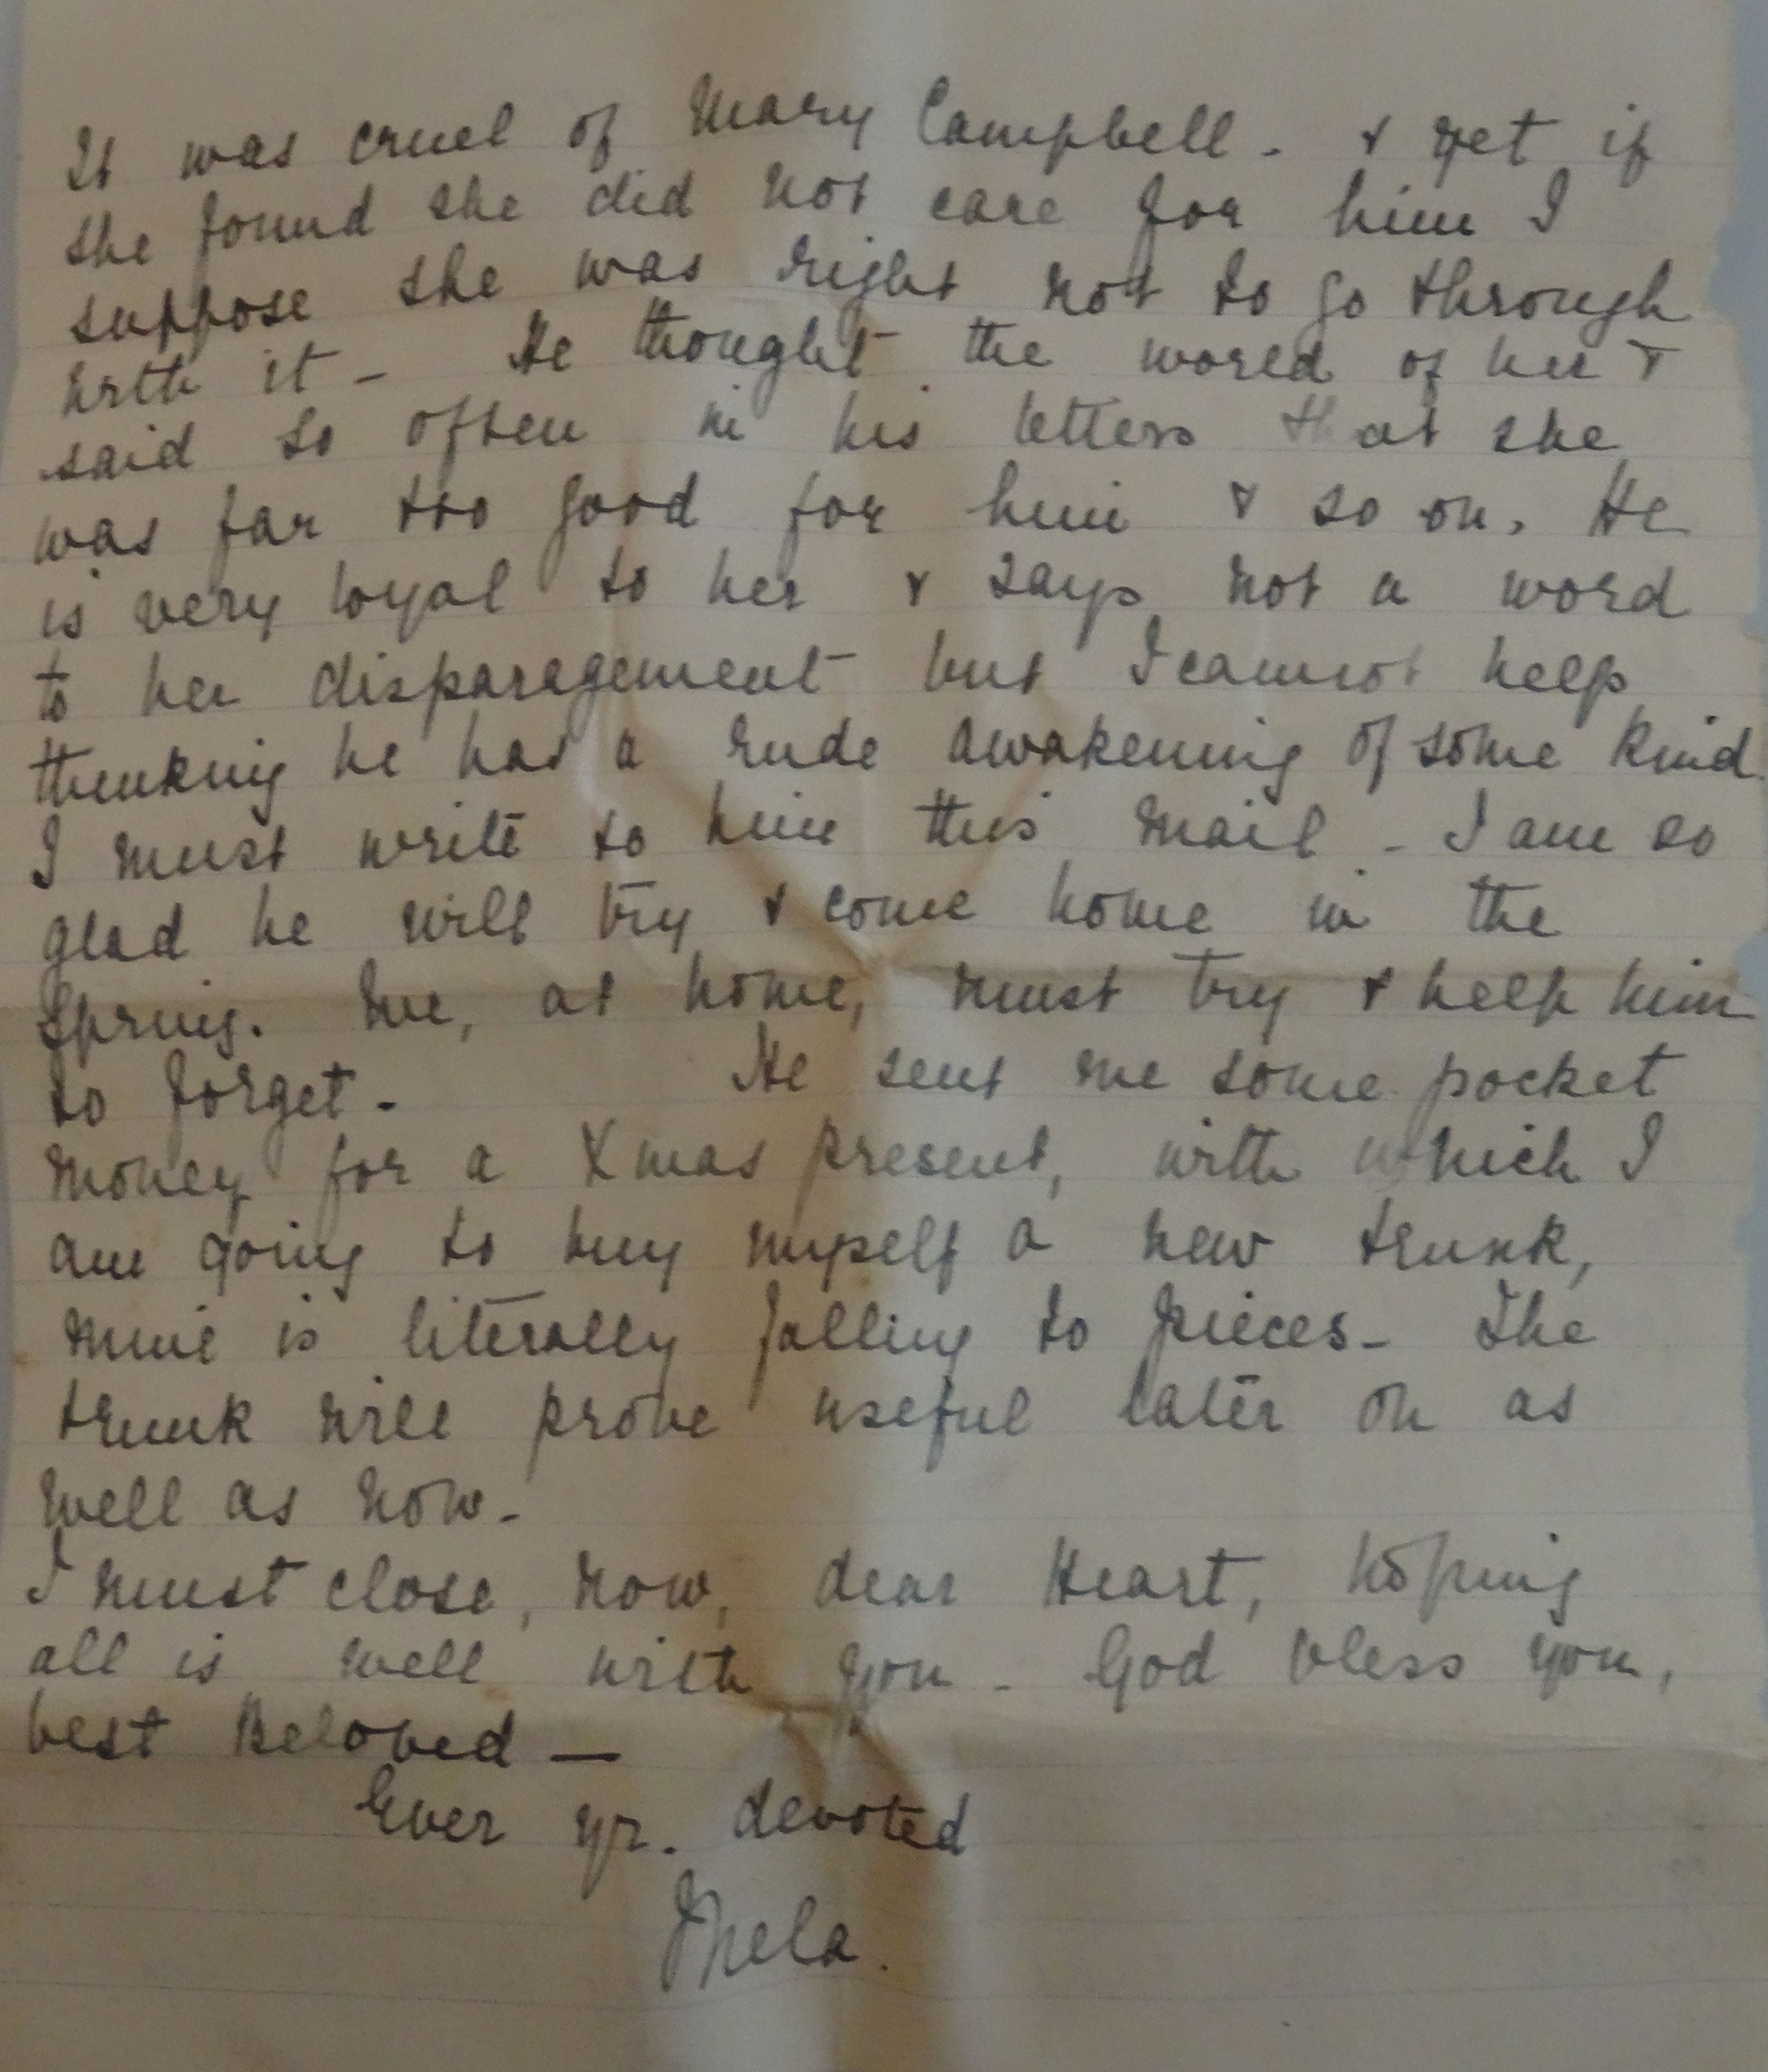 It was cruel of Mary Campbell - & yet if
she found she did not care for him I
suppose she was right not to go through
with it - He thought the world of her &
said so often in his letters that she
was far too good for him & so on. He
is very loyal to her & says not a word
to her disparagement but I cannot help
thinking he had a rude awakening of some kind.
I must write to him this mail - I am so
glad he will try & come home in the
Spring. We, at home, must try & help him
to forget - He sent me some pocket
money for a Xmas present, with which I
am going to buy myself a new trunk,
mine is literally falling to pieces - The
trunk will prove useful later on as
well as now -
I must close, now, dear Heart, hoping
all is well with you - God bless you,
best Beloved —
Ever yr. devoted